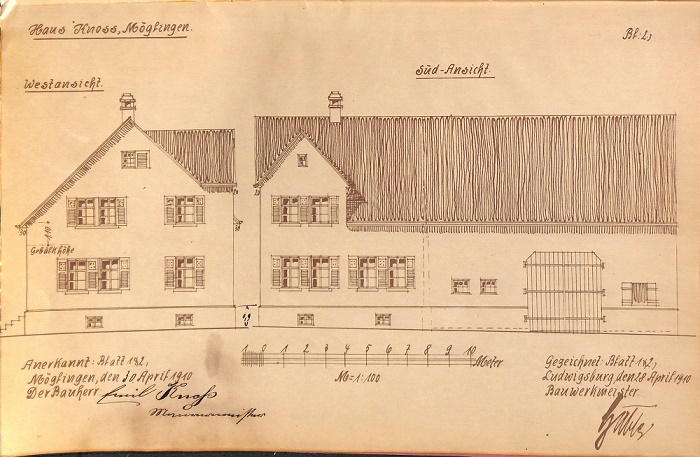 Haus Knoss, Möglingen.
Bl. 2,
Westansicht.
Süd-Ansicht.
1,10
Gebälkhöhe
1 0 1 2 3 4 5 6 7 8 9 10 Meter
M=1:100
Anerkannt: Blatt 1&2,
Möglingen, den 30 April 1910
Der Bauherr Emil Knoß
Gezeichnet: Blatt 1&2,
Ludwigsburg, den 28 April 1910
Bauwerkmeister